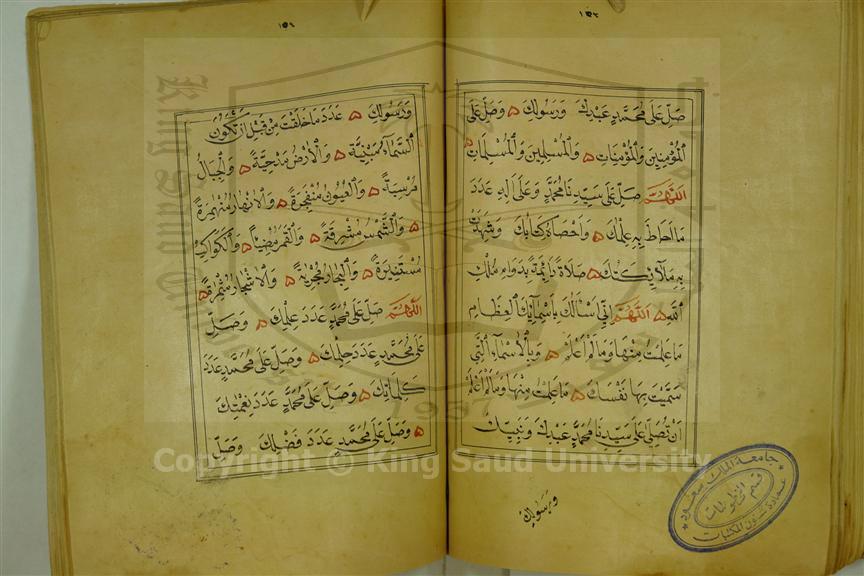 ١٥٤
صَلِّ عَلَى مُحَمَّدٍ عَبْدِكَ وَرَسُولِكَ وَصَلِّ عَلَى
الْمُؤْمِنِينَ وَالْمُؤْمِنَاتِ وَالْمُسْلِمِينَ وَالْمُسْلِمَاتِ
اَللّٰهُمَّ صَلِّ عَلَى سَيِّدِنَا مُحَمَّدٍ وَعَلَى اٰلِهِ عَدَدَ
مَا اَحَاطَ بِهِ عِلْمُكَ وَاَحْصَاهُ كِتَابُكَ وَشَهِدَتْ
بِهِ مَلَآئِكَتُكَ صَلَاةً دَآئِمَةً بِدَوَامِ مُلْكِ
اللّٰهِ اَللّٰهُمَّ اِنِّي اَسْاَلُكَ بِاَسْمَآئِكَ الْعِظَامِ
مَا عَلِمْتُ مِنْهَا وَمَا لَمْ اَعْلَمْ وَبِالْاَسْمَآءِ الَّتِي
سَمَّيْتَ بِهَا نَفْسَكَ مَا عَلِمْتُ مِنْهَا وَمَا لَمْ اَعْلَمْ
اَنْ تُصَلِّيَ عَلَى سَيِّدِنَا مُحَمَّدٍ عَبْدِكَ وَنَبِيِّكَ
وَرَسُولِكَ
جامعة الملك سعود
قسم المخطوطات
عمادة شؤون المكتبات
وَرَسُولِكَ عَدَدَ مَا خَلَقْتَ مِنْ قَبْلِ اَنْ تَكُونَ
السَّمَآءُ مَبْنِيَّةً وَالْاَرْضُ مَدْحِيَّةً وَالْجِبَالُ
مُرْسِيَةً وَالْعُيُونُ مُنْفَجِرَةً وَالْاَنْهَارُ مُنْهَمِرَةً
وَالشَّمْسُ مُشْرِقَةً وَالْقَمَرُ مُضِيئًا وَالْكَوَاكِبُ
مُسْتَنِيرَةً وَالْبِحَارُ مُجْرِيَةً وَالْاَشْجَارُ مُثْمِرَةً
اَللّٰهُمَّ صَلِّ عَلَى مُحَمَّدٍ عَدَدَ عِلْمِكَ وَصَلِّ
عَلَى مُحَمَّدٍ عَدَدَ حِلْمِكَ وَصَلِّ عَلَى مُحَمَّدٍ عَدَدَ
كَلِمَاتِكَ وَصَلِّ عَلَى مُحَمَّدٍ عَدَدَ نِعْمَتِكَ
وَصَلِّ عَلَى مُحَمَّدٍ عَدَدَ فَضْلِكَ وَصَلِّ
King Saud University
1957
Copyright © King Saud University